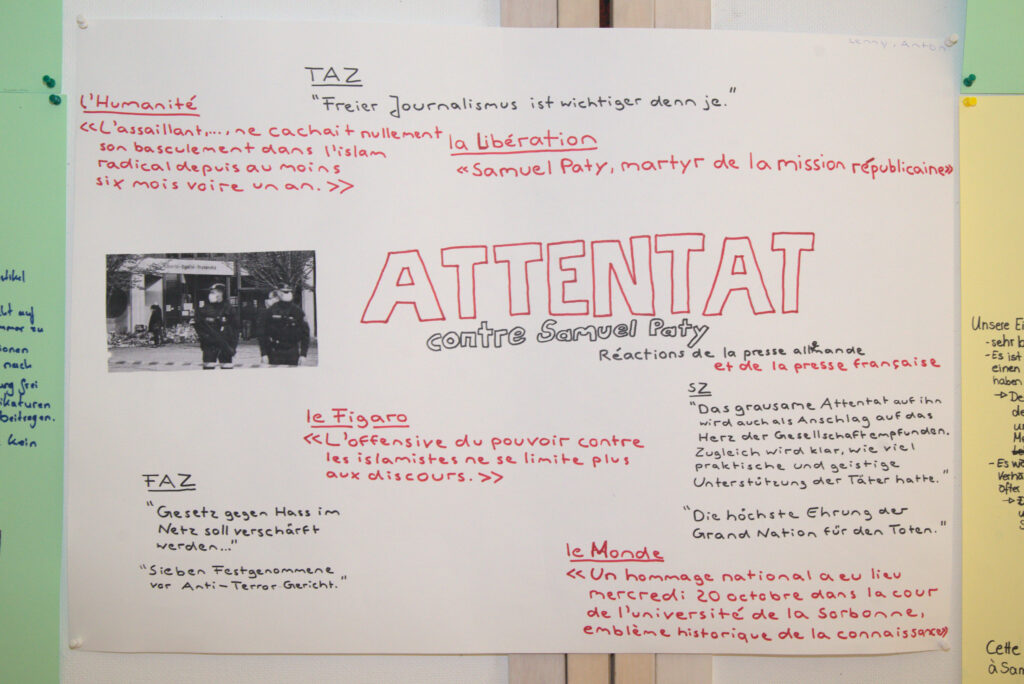 Lenny, Anton
TAZ
"Freier Journalismus ist wichtiger denn je."
l'Humanité
«L'assaillant,..., ne cachait nullement
son basculement dans l'islam
radical depuis au moins
six mois voire un an.»
la Libération
«Samuel Paty, martyr de la mission républicaine»
ATTENTAT
contre Samuel Paty
Réactions de la presse allemande
et de la presse française
le Figaro
«L'offensive du pouvoir contre
les islamistes ne se limite plus
aux discours.»
SZ
"Das grausame Attentat auf ihn
wird auch als Anschlag auf das
Herz der Gesellschaft empfunden.
Zugleich wird klar, wie viel
praktische und geistige
Unterstützung der Täter hatte."
"Die höchste Ehrung der
Grand Nation für den Toten."
FAZ
"Gesetz gegen Hass im
Netz soll verschärft
werden..."
"Sieben Festgenommene
vor Anti-Terror Gericht."
le Monde
«Un hommage national a eu lieu
mercredi 20 octobre dans la cour
de l'université de la Sorbonne,
emblème historique de la connaissance»
auf
zu
nach
frei
beitragen.
kein
Unsere
-sehr
-Es ist
einen
haben
-Es
öfter
Cette